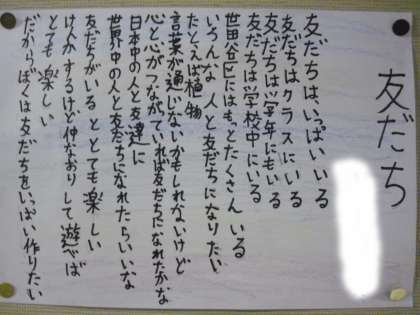 友だち
友だちは、いっぱいいる
友だちはクラスにいる
友だちは学年にもいる
友だちは学校中にいる
世田谷区にはもっとたくさんいる
いろんな人と友だちになりたい
たとえば植物
言葉が通じないかもしれないけど
心と心がつながていれば友だちになれたかな
日本中の人と友達に
世界中の人と友だちになれたらいいな
友だちがいるととても楽しい
けんかするけど仲なおりして遊べば
とても楽しい
だからぼくは友だちをいっぱい作りたい